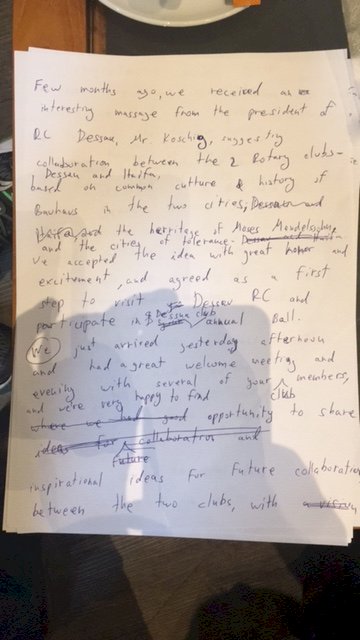 Few months ago, we received an
interesting massage from the president of
RC Dessau, Mr. Koschig, suggesting
collaboration between the 2 Rotary clubs -
Dessau and Haifa,
based on common culture & history of
Bauhaus in the two cities, Dessau and
Haifa, and the heritage of Moses Mendelsohn,
and the cities of tolerance. Dessau and Haifa -
We accepted the idea with great honor and
excitement, and agreed as a first
step to visit Dessau RC and
participate in Dessau club annual Ball.
We just arrived yesterday afternoon
and had a great welcome meeting and
evening with several of your club members,
and we're very happy to find
where we had good opportunity to share
ideas for future collaboration and
inspirational ideas for future collaboration
between the two clubs, with a vision